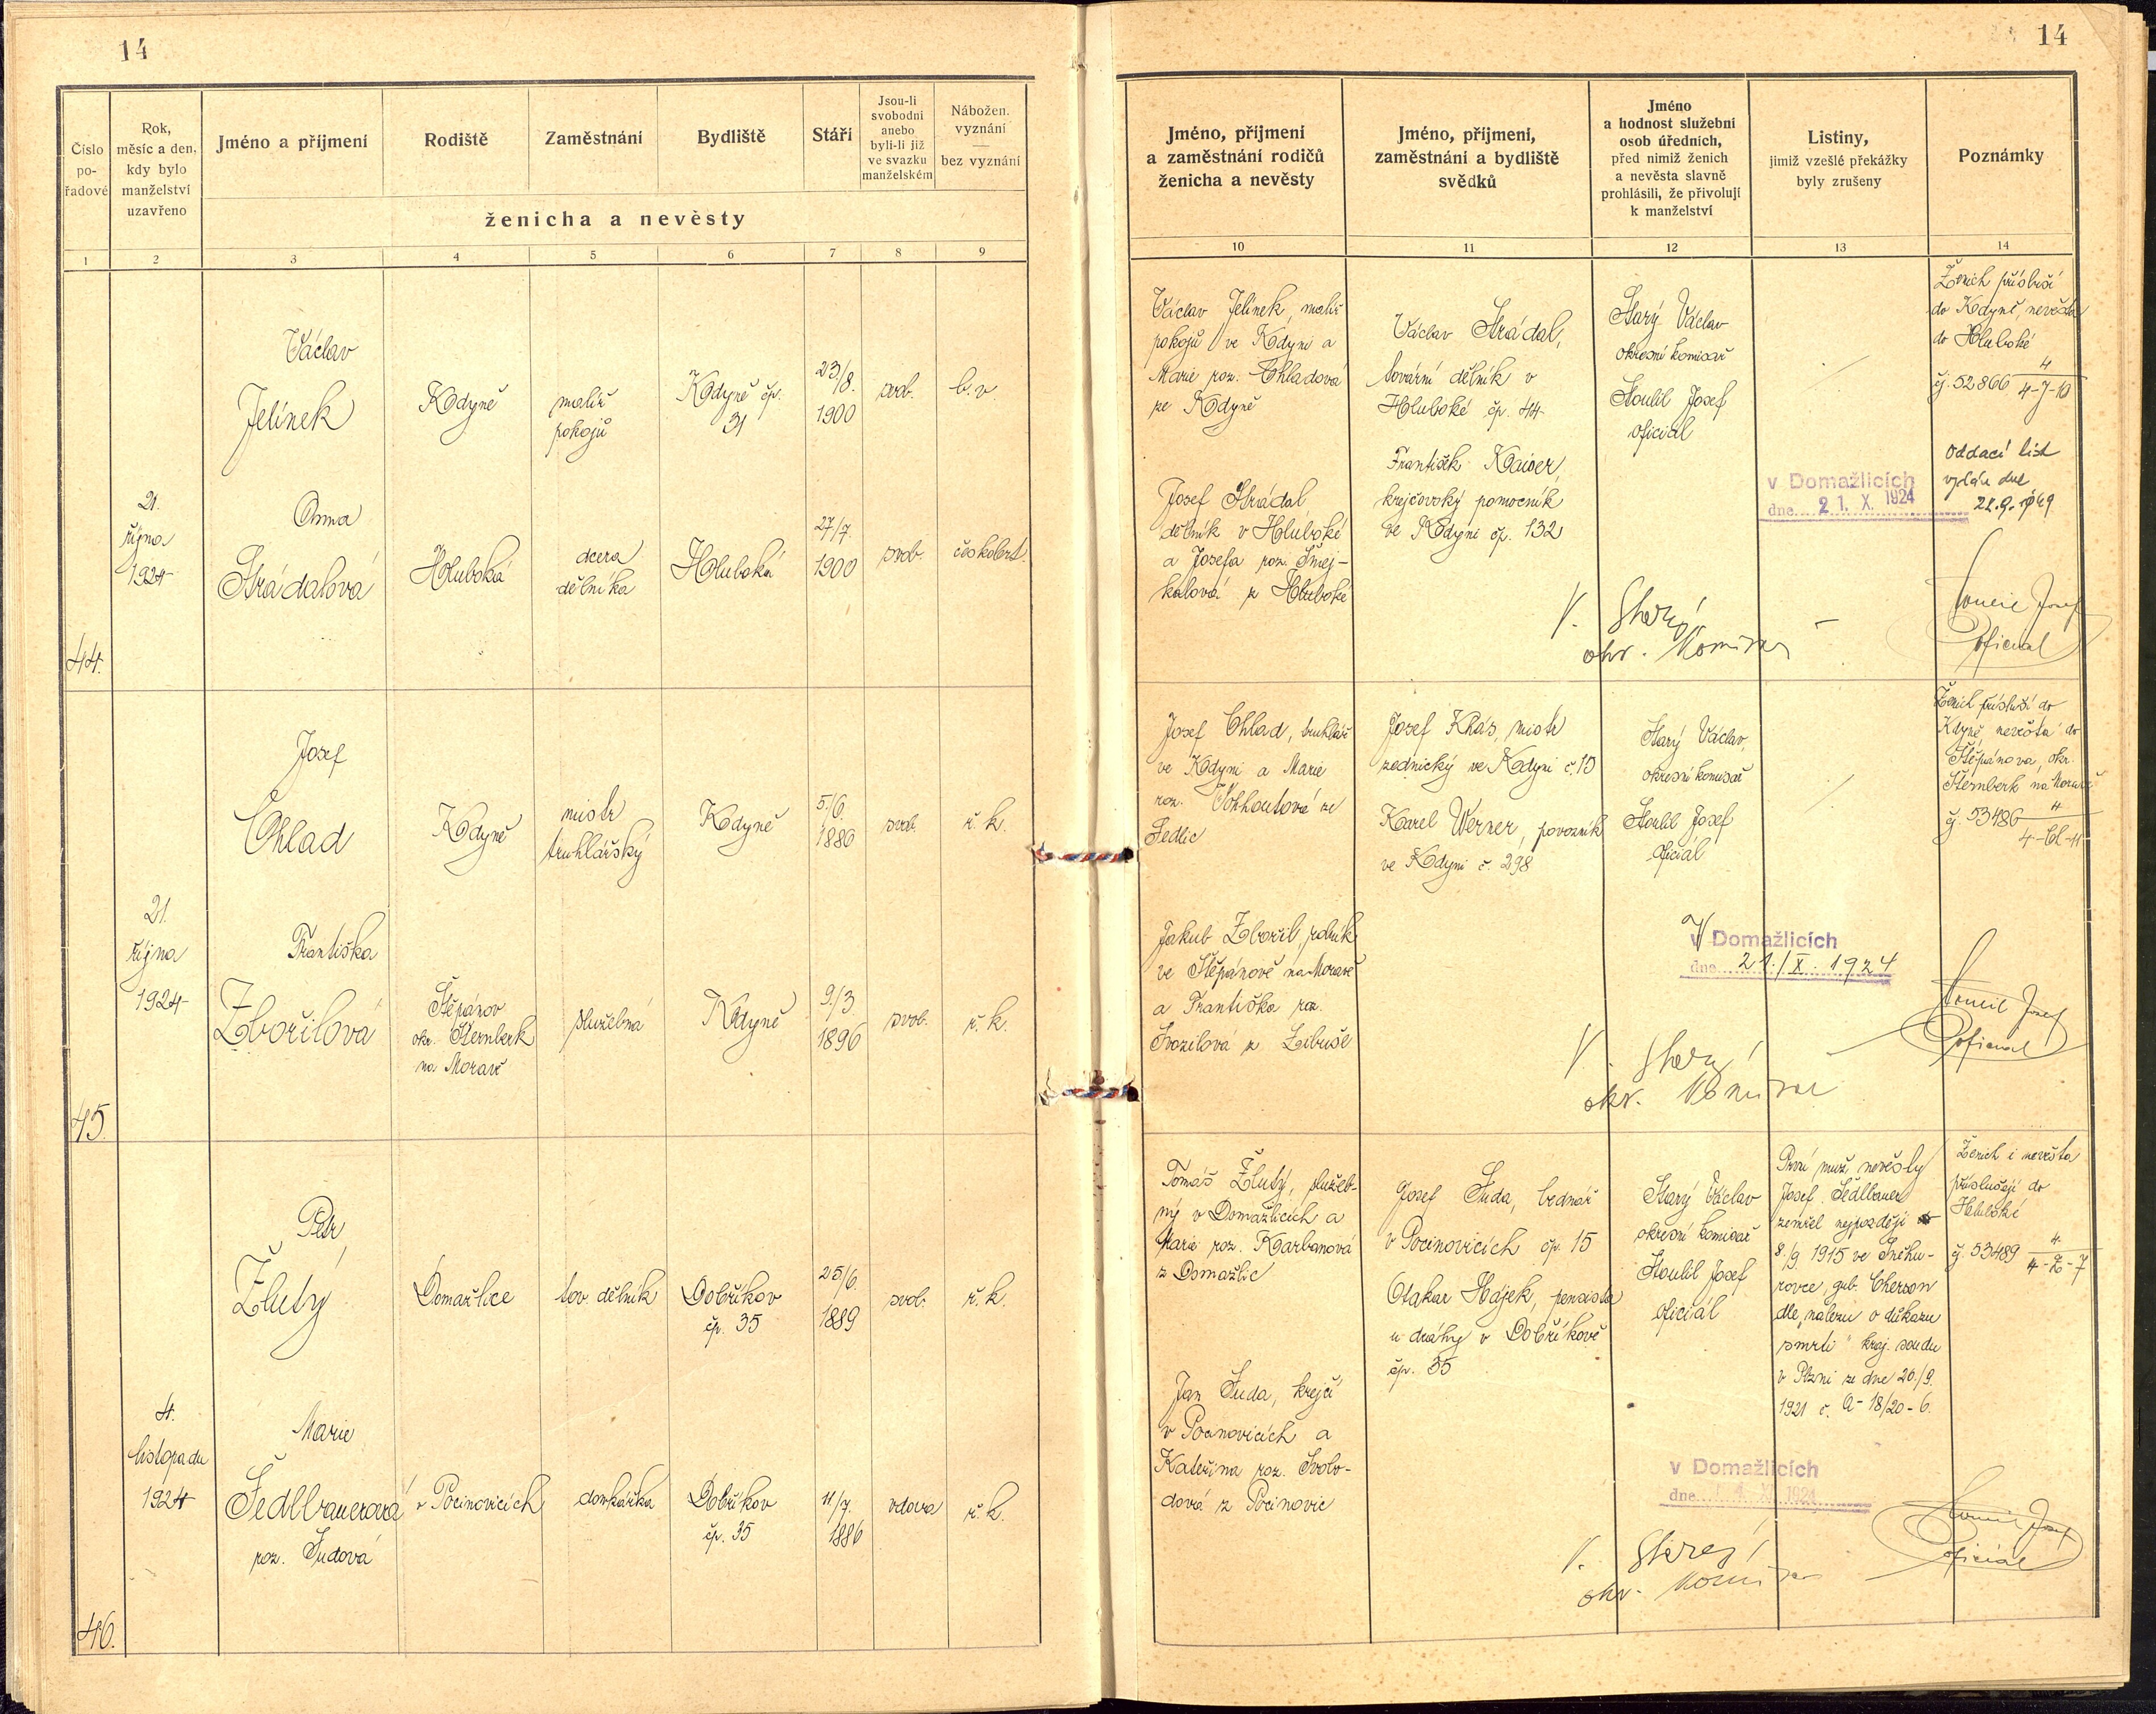 14
14
Číslo
po-
řadové
Rok,
měsíc a den,
kdy bylo
manželství
uzavřeno
Jméno a příjmení
Rodiště
Zaměstnání
Bydliště
Stáří
Jsou-li
svobodni
anebo
byli-li již
ve svazku
manželském
Nábožen.
vyznání
bez vyznání
ženicha a nevěsty
1 2 3 4 5 6 7 8 9
Jméno, příjmení
a zaměstnání rodičů
ženicha a nevěsty
Jméno, příjmení,
zaměstnání a bydliště
svědků
Jméno
a hodnost služební
osob úředních,
před nimiž ženich
a nevěsta slavně
prohlásili, že přivolují
k manželství
Listiny,
jimiž vzešlé překážky
byly zrušeny
Poznámky
10 11 12 13 14
44.
21.
října
1924
Václav
Jelínek
Kdyně
malíř
pokojů
Kdyně čp.
31
23/8.
1900
svob.
b. v.
Anna
Strádalová
Hluboká
dcera
dělníka
Hluboká
27/7.
1900
svob.
českobrt.
Václav Jelínek, malíř
pokojů ve Kdyni a
Marie roz. Chladová
ze Kdyně
Josef Strádal,
dělník v Hluboké
a Josefa roz. Smej-
kalová z Hluboké
Václav Strádal,
tovární dělník v
Hluboké čp. 44
František Kaiser,
krejčovský pomocník
ve Kdyni čp. 132
Starý Václav
okresní komisař
Stoulil Josef
oficiál
v Domažlicích
dne 21. X. 1924
Ženich přísluší
do Kdyně, nevěsta
do Hluboké
čj. 52866 4
4-J-10
oddací list
vydán dne
22.9.1949
V. Starý
okr. komisař
Stoulil Josef
oficial
45.
21.
října
1924
Josef
Chlad
Kdyně
mistr
truhlářský
Kdyně
5./6.
1880
svob.
ř. k.
Františka
Zbořilová
Štěpánov
okr. Šternberk
na Moravě
služebná
Kdyně
9./3.
1896
svob.
ř. k.
Josef Chlad, truhlář
ve Kdyni a Marie
roz. ze
Sedlic
Jakub Zbořil, rolník
ve Štěpánově na Moravě
a Františka roz.
Svozilová z Liboše
Josef Khás, mistr
zednický ve Kdyni č. 10
Karel Werner, povozník
ve Kdyni č. 298
Starý Václav,
okresní komisař
Stoulil Josef
oficiál
V Domažlicích
dne 21./X. 1924
Ženich přísluší do
Kdyně, nevěsta do
Štěpánova, okr.
Šternberk na Moravě
čj. 53486 4
4-Ch-11
V. Starý
okr. komisař
Stoulil Josef
oficial
46.
4.
listopadu
1924
Petr
Žlutý
Domažlice
tov. dělník
Dobříkov
čp. 35
25/6.
1889
svob.
ř. k.
Marie
Šedlbauerová
roz. Sudová
v Pocinovicích
domkářka
Dobříkov
čp. 35
11/7.
1886
vdova
ř. k.
Tomáš Žlutý, služeb-
ný v Domažlicích a
Marie roz. Karbanová
z Domažlic
Jan Suda, krejčí
v Pocinovicích a
Kateřina roz. Svobo-
dová z Pocinovic
Josef Suda, bednář
v Pocinovicích čp. 15
Otakar Hájek, pensista
u dráhy v Dobříkově
čp. 35
Starý Václav
okresní komisař
Stoulil Josef
oficiál
První muž nevěsty
Josef Šedlbauer
zemřel nejpozději
8./9. 1915 ve Sněhu-
rovce, gub. Cherson
dle „nálezu o důkazu
smrti" kraj. soudu
v Plzni ze dne 20./9.
1921 č. A-18/20-6.
v Domažlicích
dne 4. XI. 1924
Ženich i nevěsta
příslušejí do
Hluboké
čj. 53489 4
4-Ž-7
V. Starý
okr. komisař
Stoulil Josef
oficiál